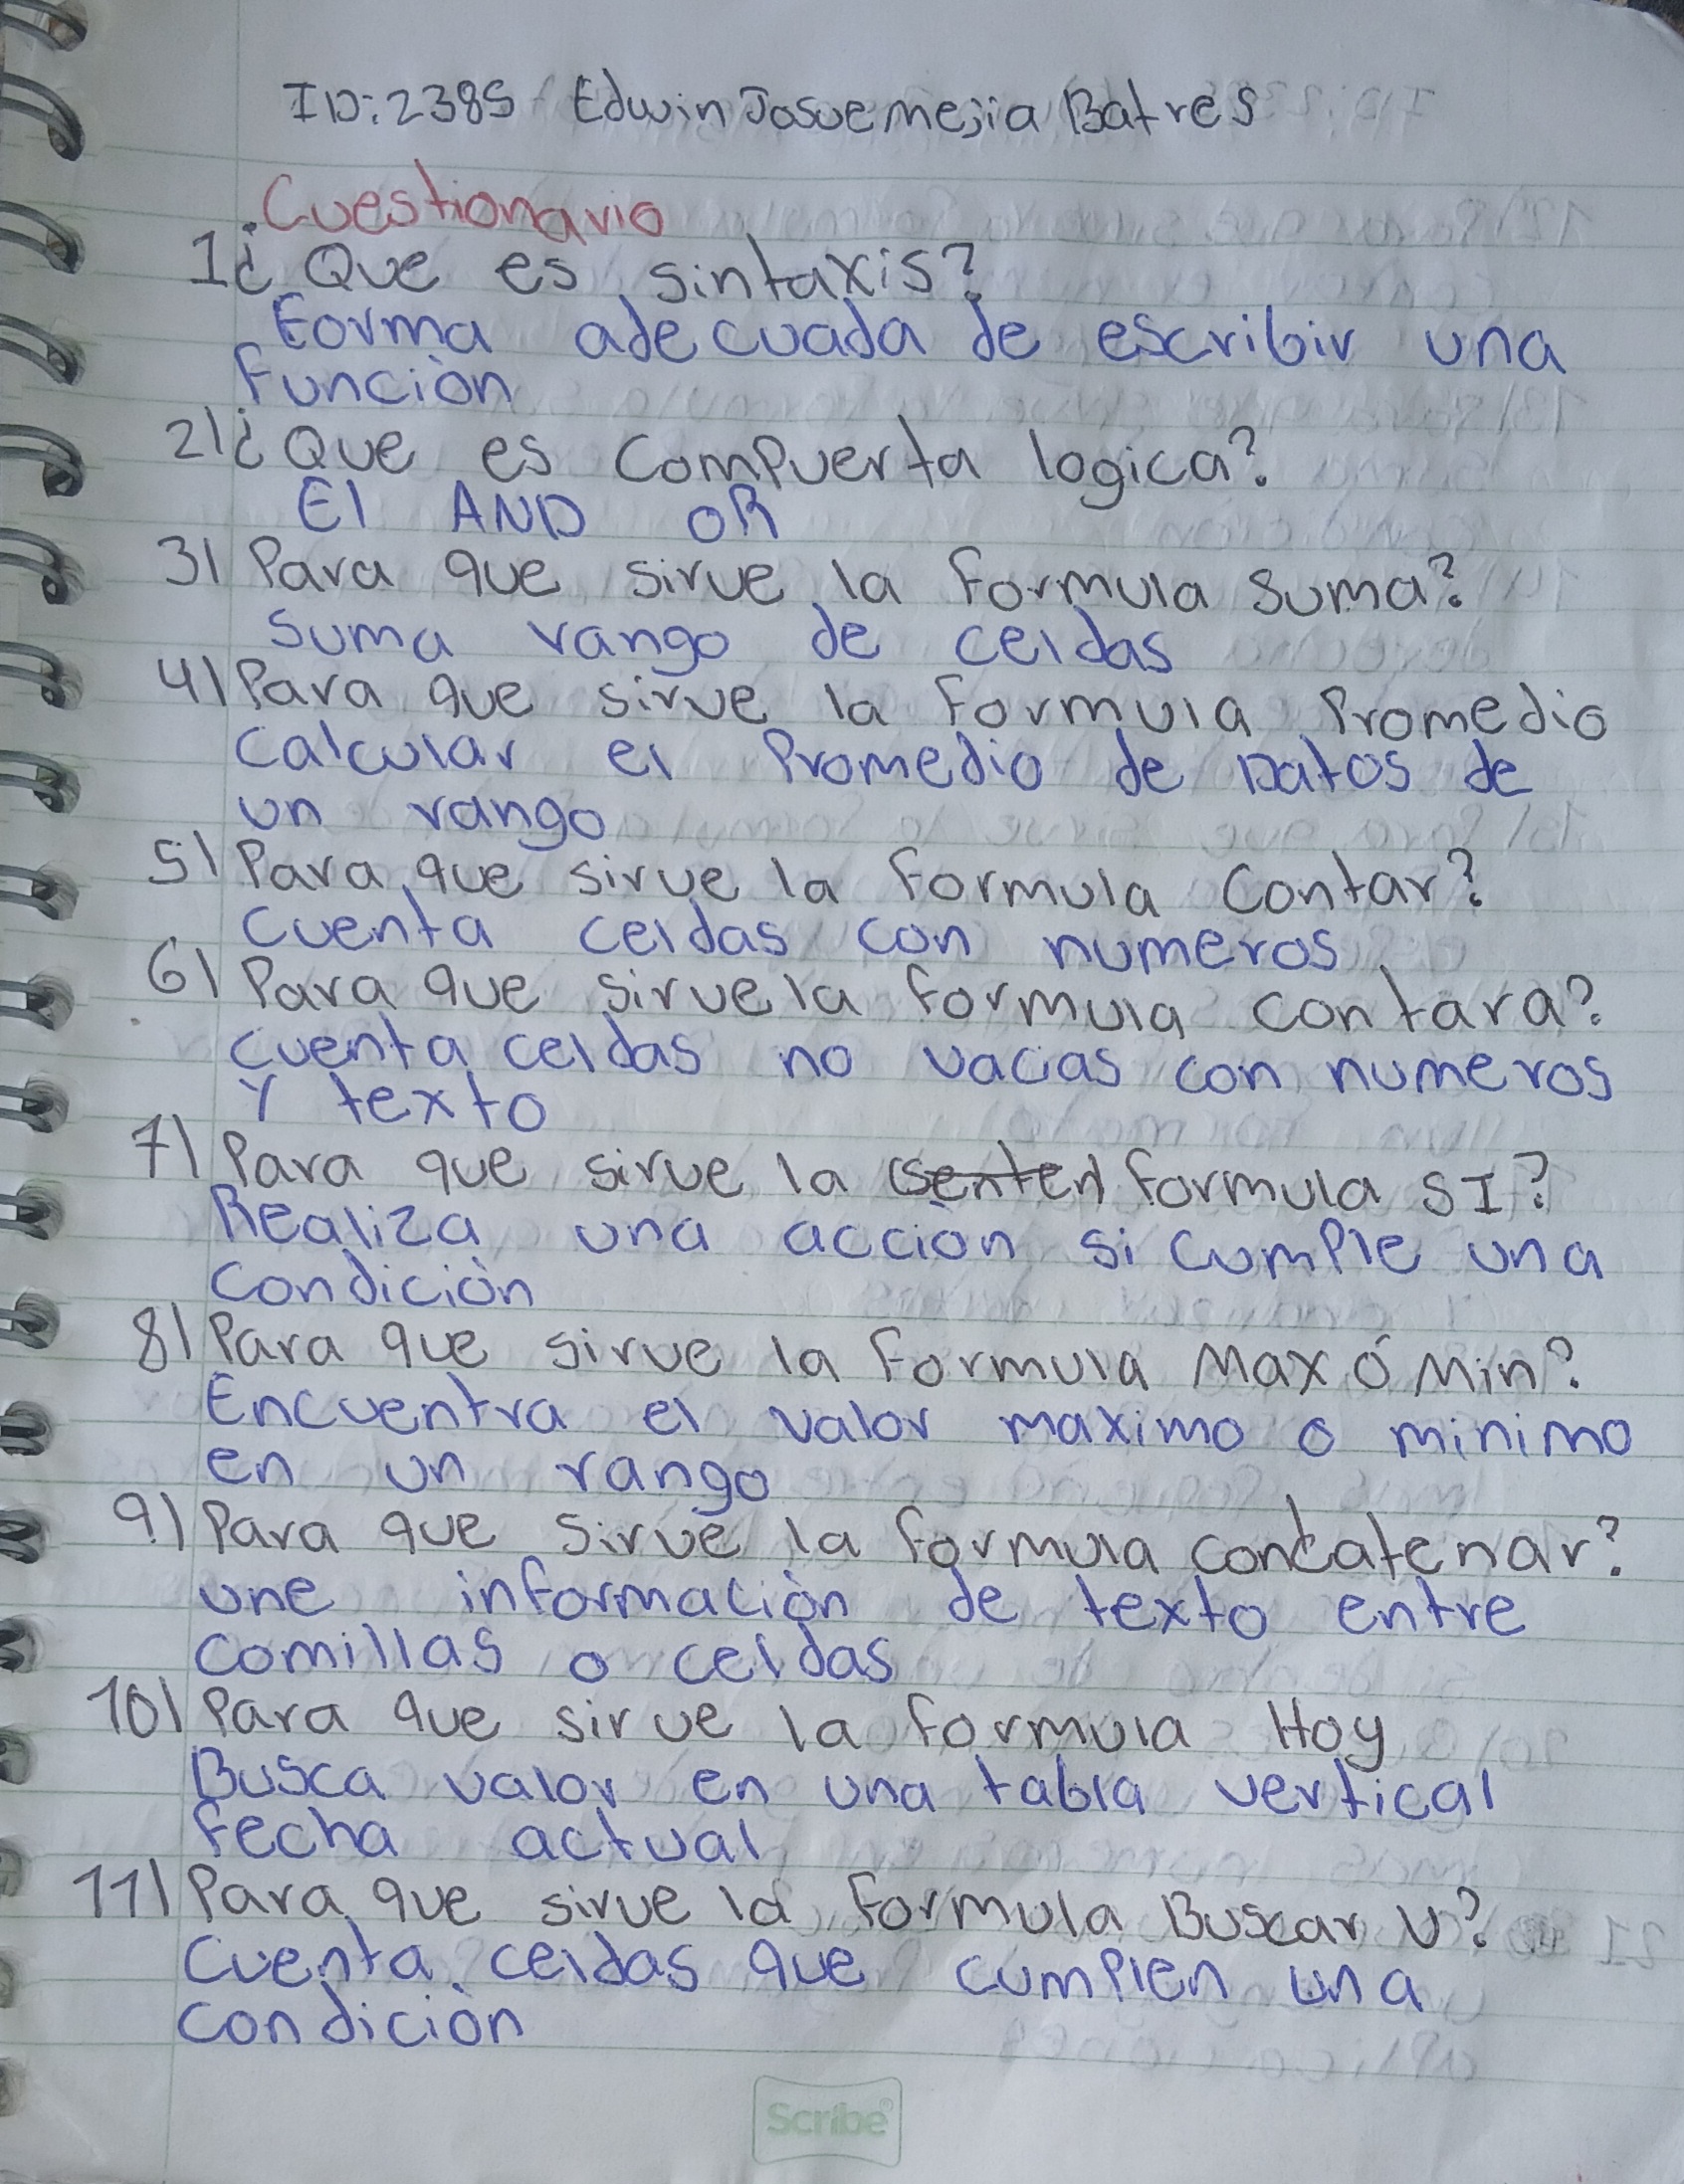 ID: 2385 Edwin Josue mejia Batres
Cuestionario
1¿ Que es sintaxis?
Forma adecuada de escribir una
Función
2|¿Que es Compuerta logica?
El AND OR
3| Para que sirve la formula Suma?
Suma rango de celdas
4| Para que sirve la formula Promedio
Calcular el Promedio de Datos de
un rango
5| Para que sirve la formula Contar?
Cuenta celdas con numeros
6| Para que sirve la formula contara?
cuenta celdas no vacias con numeros
Y texto
7| Para que sirve la formula SI?
Realiza una acción si cumple una
Condición
8| Para que sirve la formula Max ó Min?
Encuentra el valor maximo o minimo
en un rango
9.| Para que sirve la formula concatenar?
une información de texto entre
comillas o celdas
10| Para que sirve la formula Hoy
Busca valor en una tabla vertical
fecha actual
11| Para que sirve la formula Buscar V?
Cuenta celdas que cumplen una
condición
Scribe